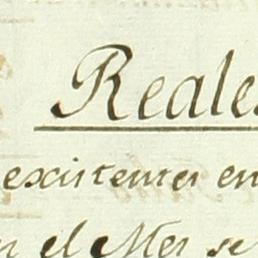 Reales
existentes en
en el Mes se